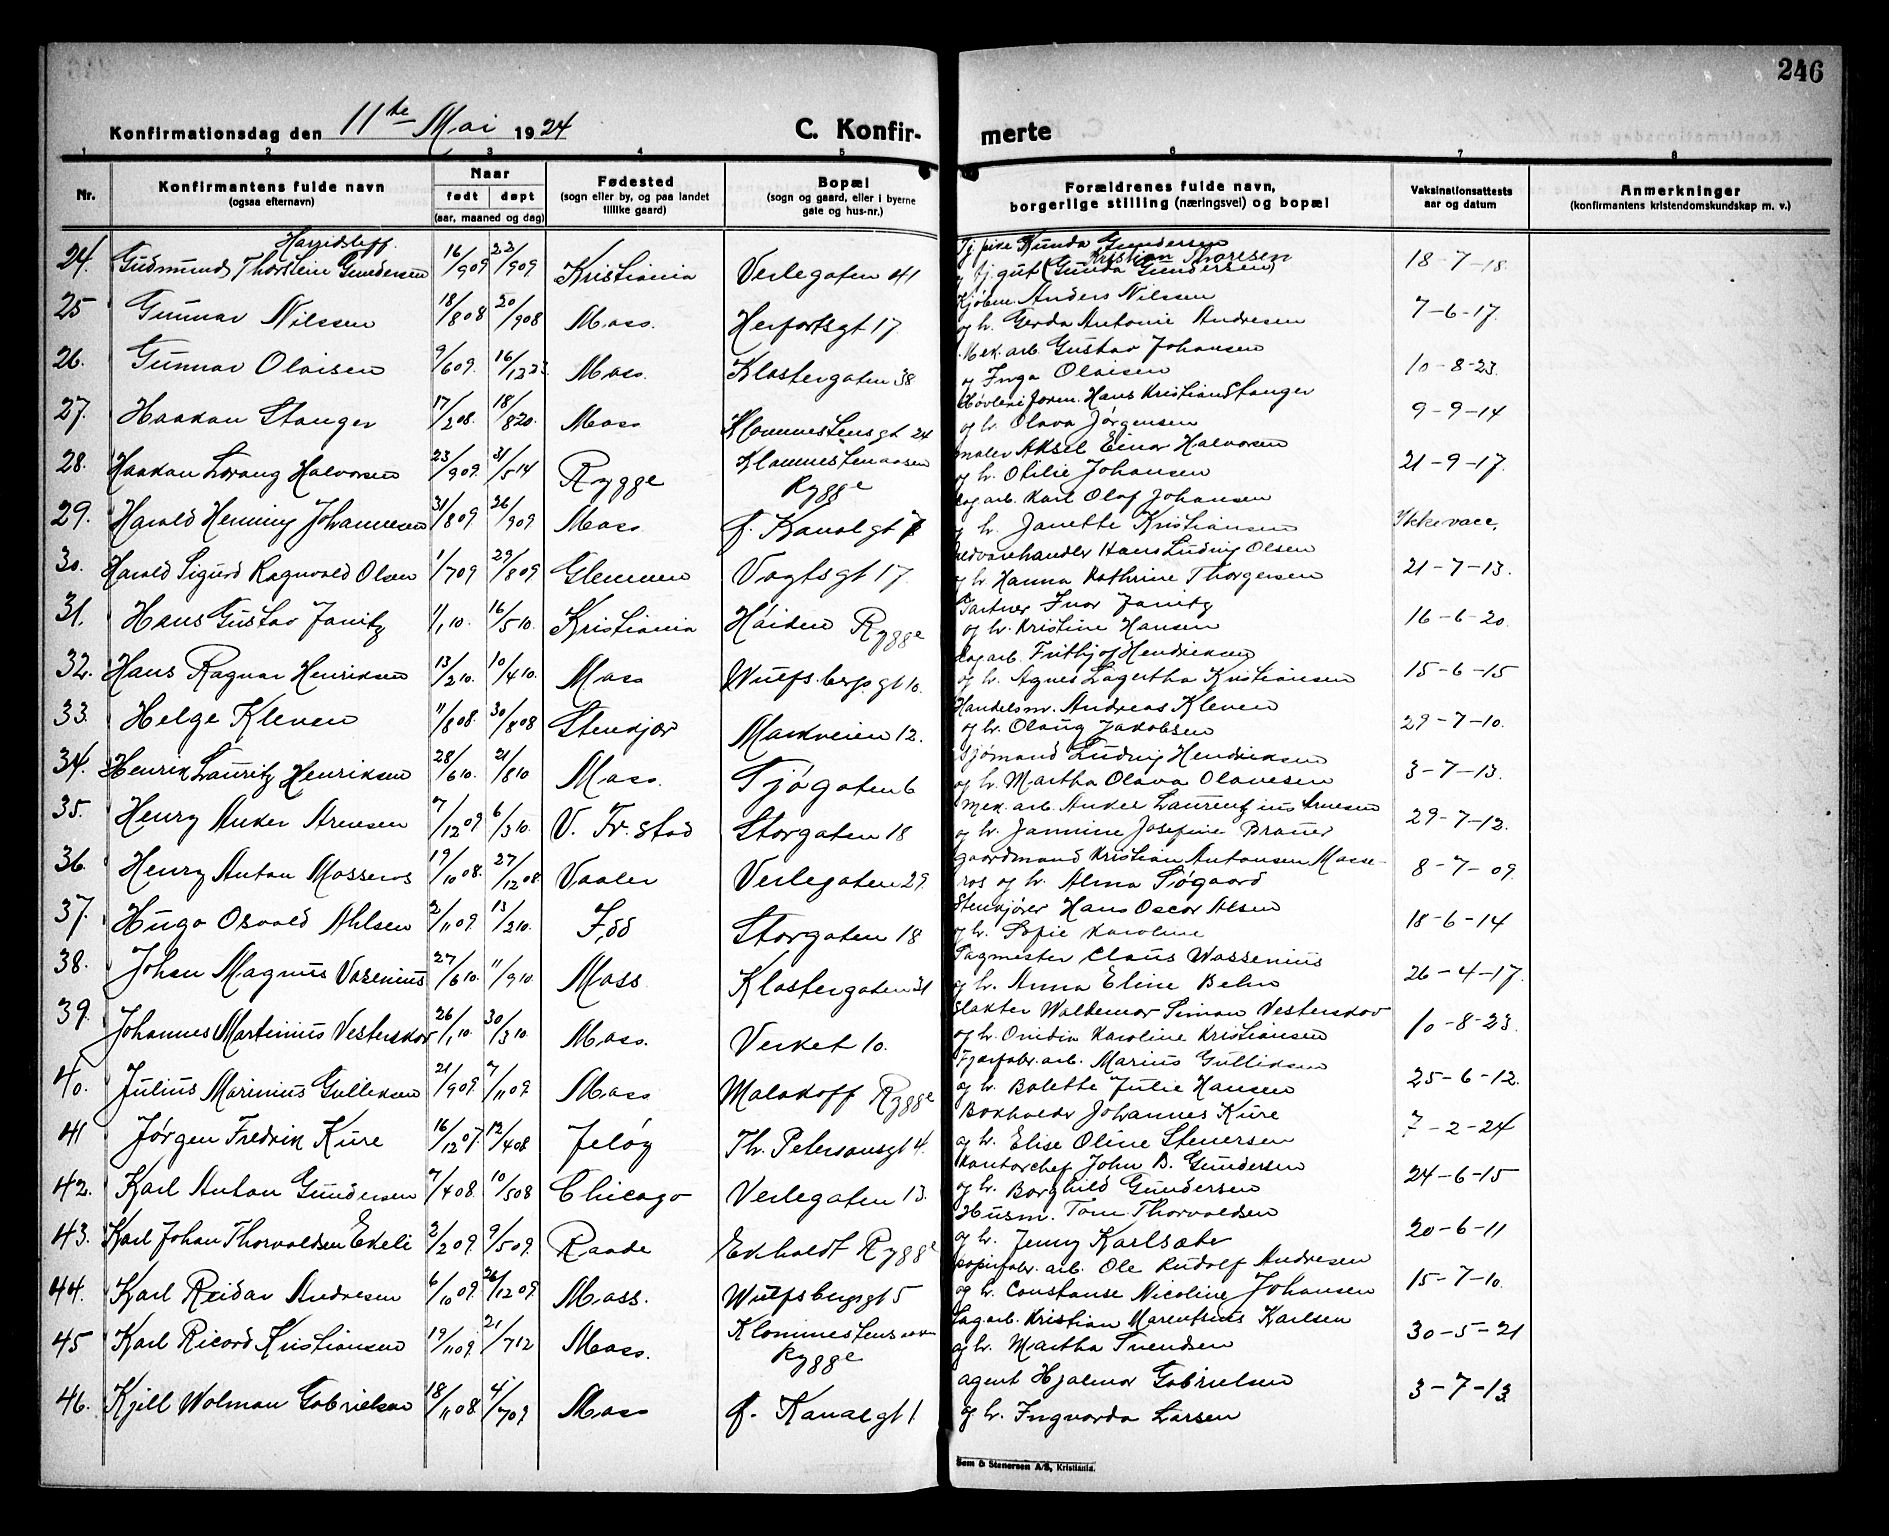 246
Konfirmationsdag den 11te Mai 1924 C. Konfirmerte
1 2 3 4 5 6 7 8
Nr. Konfirmantens fulde navn (ogsaa efternavn) Naar født døpt (aar, maaned og dag) Fødested (sogn eller by, og paa landet tillike gaard) Bopæl (sogn og gaard, eller i byerne gate og hus-nr.) Forældrenes fulde navn, borgerlige stilling (næringsvei) og bopæl Vaksinationsattests aar og datum Anmerkninger (konfirmantens kristendomskundskap m. v.)
24. Gudmund Thorstein Gundersen 16/909 23/909 Kristiania Verlegaten 41 Tj. pike Gunda Gundersen
Kristian Thoresen
tj. gut (Gunda Gundersen) 18-7-18
25 Gunnar Nilssen 18/808 20/908 Moss. Herfortsgt 17. Kjøbm. Anders Nilssen
og h. Gerda Antonie Andresen 7-6-17.
26. Gunnar Olaisen 9/609. 16/1223 Moss. Klostergaten 38 Mek. arb. Gustav Johansen
og Inga Olaisen 10-8-23.
27. Haakon Stanger 17/208. 18/820. Moss Klommestensgt 24 Høvleriform. Hans Kristian Stanger
og h. Olava Jørgensen 9-9-14
28. Haakon Lorang Halvorsen 23/909. 31/514 Rygge Klommestenaasen
Rygge maler Aksel Einar Halvorsen
og h. Otilie Johansen 21-9-17.
29. Harald Henning Johannesen 31/809 26/909 Moss f. Kanalgt 7 Lagarb. Karl Olaf Johansen
og h. Janette Kristiansen Ikke vacc.
30. Harald Sigurd Ragnvald Olsen 1/709 29/809 Glemmen Vogtsgt 17. Vedvarehandler Hans Ludvig Olsen
og h. Hanna Kathrine Thorgersen 21-7-13.
31. Hans Gustav Janitz 1/1,10. 16/510. Kristiania Høiden Rygge Gartner Ivar Janitz
og h. Kristine Hansen 16-6-20.
32. Hans Ragnar Henriksen 13/210. 10/410. Moss Wulfsbergsgt 10. Lagarb. Frithjof Hendriksen
og h. Agnes Lagertha Kristiansen 15-6-15
33. Helge Kleven 11/808. 30/808 Stenkjær Markveien 12. Handelsm. Andreas Kleven
og h. Olaug Jakobsen 29-7-10.
34. Henrik Lauritz Henriksen 28/610. 21/810 Moss. Sjøgaten 6 Sjømand Ludvig Hendriksen
og h. Martha Olava Olavesen 3-7-13.
35. Henry Anker Arnesen 7/1209 6/310. V. Fr. stad Storgaten 18 Mek. arb. Anker Laurentzius Arnesen
og h. Jannine Josefine Brauer 29-7-12.
36. Henry Anton Mosseros 19/1008. 27/1208 Vaaler Verlegaten 29. gaardmand Kristian Antonsen Mosse-
ros og h. Alma Søgaard 8-7-09.
37. Hugo Osvald Ahlsen 2/1109. 13/210. Idd Storgaten 18 Stenkjører Hans Oscar Alsen
og h. Sofie Karoline 18-6-14
38. Johan Magnus Vasenius 27/610. 11/910. Moss Klostergaten 31 Pagmester Claus Wassenius
og h. Anna Eline Behn 26-4-17.
39. Johannes Martinius Vesterskov 26/1,10. 30/310. Moss. Verket 10. Slakter Waldemar Simon Vesterskov
og h. Ovidia Karoline Kristiansen 10-8-23.
40. Julius Marinius Gulliksen 21/909 7/1109. Moss Malakoff Rygge Tjærfabr. arb. Marius Gulliksen
og h. Bolette Julie Hansen 25-6-12.
41 Jørgen Fredrik Kure 16/1207. 12/408 Jeløy Th. Petersonsgt 4. Bokholder Johannes Kure
og h. Elise Oline Stenersen 7-2-24
42. Karl Anton Gundersen 7/408. 10/508 Chicago Verlegaten 13. Kontorchef John B. Gundersen
og h. Borghild Gundersen 24-6-15
43. Karl Johan Thorvaldsen Ekeli 2/209. 9/509. Raade Ekholdt Rygge Husm. Tom Thorvaldsen
og h. Jenny Karlsæter 20-6-11
44. Karl Reidar Andresen 6/1009. 26/1209. Moss. Wulfsbergsgt 5 papirfabr. arb. Ole Rudolf Andresen
og h. Constanse Nicoline Johansen 15-7-10.
45 Karl Ricard Kristiansen 19/1109. 21/712 Moss. Klommestensaasen
Rygge Lagarb. Kristian Marentsius Karlsen
og h. Martha Svendsen 30-5-21
46. Kjell Wolman Gabrielsen 18/1108. 4/709 Moss f. Kanalgt 1 agent Hjalmar Gabrielsen
og h. Ingvarda Larsen 3-7-13
Sem & Stenersen A/S, Kristiania.